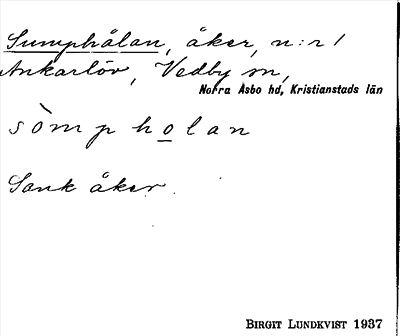 Sumphålan, åker, n:r 1
Ankarlöv, Vedby sn,
Norra Åsbo hd, Kristianstads län
sòmpholan
Sank åker.
BIRGIT LUNDKVIST 1937